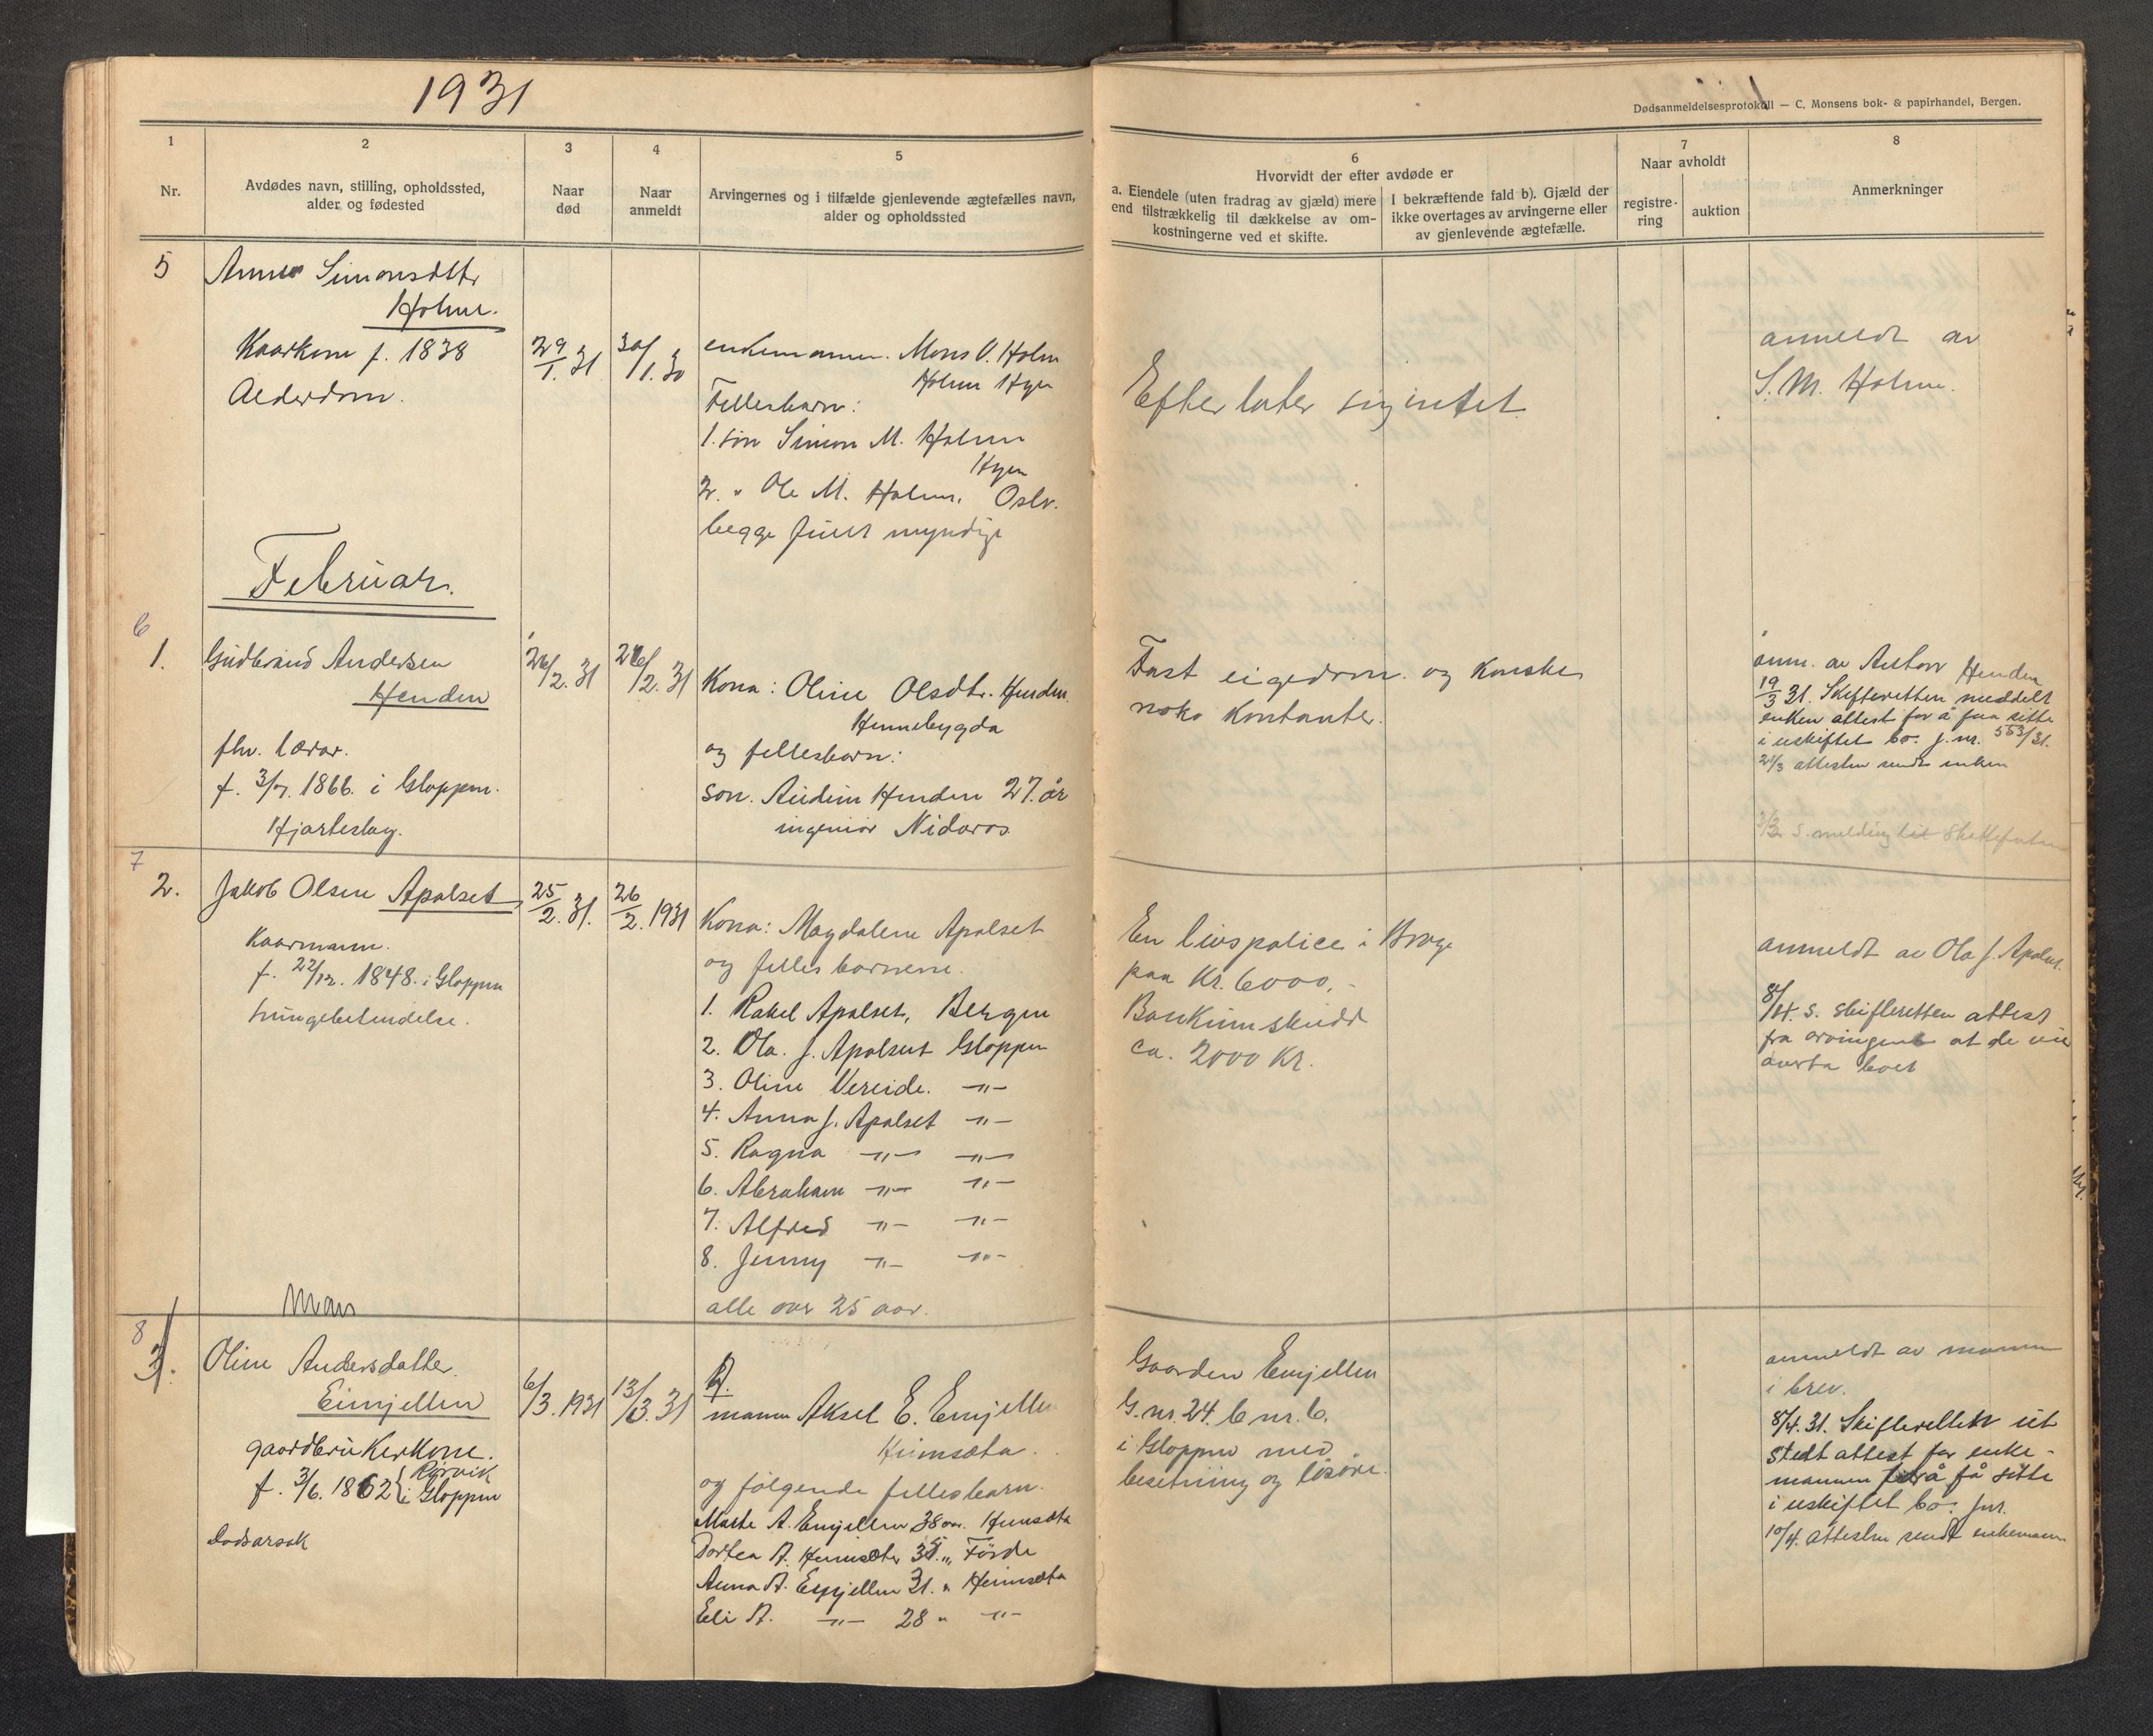 1931
Dødsanmeldelsesprotokoll — C. Monsens bok- & papirhandel, Bergen.
1
Nr.
2
Avdødes navn, stilling, opholdssted,
alder og fødested
3
Naar
død
4
Naar
anmeldt
5
Arvingernes og i tilfælde gjenlevende ægtefælles navn,
alder og opholdssted
6
Hvorvidt der efter avdøde er
a. Eiendele (uten fradrag av gjæld) mere
end tilstrækkelig til dækkelse av om-
kostningerne ved et skifte.
I bekræftende fald b). Gjæld der
ikke overtages av arvingerne eller
av gjenlevende ægtefælle.
7
Naar avholdt
registre-
ring
auktion
8
Anmerkninger
5
Anne Simonsdtr
Holme.
Kaarkone f. 1838
Alderdom.
29/1. 31
30/1. 30
enkemann. Mons O. Holm
Holme Hyen
Fellesbarn:
1. son Simon M. Holme
Hyen
2. " Ole M. Holme, Oslo.
begge fullt myndige
Efterlater sig intet
anmeldt av
S. M. Holme.
Februar.
6
1.
Gudbrand Andersen
Henden
fhv. lærar.
f. 3/7. 1866. i Gloppen.
Hjarteslag.
26/2. 31
26/2. 31
Kona: Oline Olsdtr. Henden
Hennebygda
og fellesbarn:
son. Audun Henden 27. år
ingeniør Nidaros
Fast eigedom. og kanske
noko kontanter.
anm. av Anton Henden
19/3 31. Skifteretten meddelt
enken attest for å faa sitte
i uskiftet bo. j.nr. 553/31.
21/3 attesten sendt enken
s. melding til Skattefuten
7
2.
Jakob Olsen Apalset
Kaarmann.
f. 22/12. 1848. i Gloppen
Lungebetendelse.
25/2. 31.
26/2. 1931
Kona: Magdalene Apalset
og felles barnene.
1. Rakel Apalset, Bergen
2. Ola. J. Apalset Gloppen
3. Oline Vereide. -"-
4. Anna J. Apalset -"-
5. Ragna -"- -"-
6. Abraham -"- -"-
7. Alfred -"- -"-
8. Jenny -"- -"-
alle over 25 aar.
En livspolice i Brage
paa Kr. 6000,-
Bankinnskudd
ca. 2000 Kr.
anmeldt av Ola J. Apalset.
8/4. s. skifteretten attest
fra arvingene at de vil
overta boet
Mars
8
Oline Andersdatter.
Eimjellen
gaardbrukerkone.
f. 3/6. 1862 { Rørvik
i Gloppen
Dødsarsak
6/3. 1931
13/3. 31
mannen Aksel E. Eimjellen
Heimsæta.
og følgende fellesbarn.
Marte A. Eimjellen 38 aar. Heimsæta
Dortea A. Heimsæter 35 " Førde
Anna A. Eimjellen 31. " Heimsæta
Eli A. -"- 28 " -"-
Gaarden Eimjellen
G. nr. 24. b nr. 6.
i Gloppen med
besetning og lösöre.
anmeldt av mannen
i brev.
8/4. 31. Skifteretten ut
stedt attest for enke-
mannen for å få sitte
i uskiftet bo. jnr.
10/4. attesten sendt enkemann